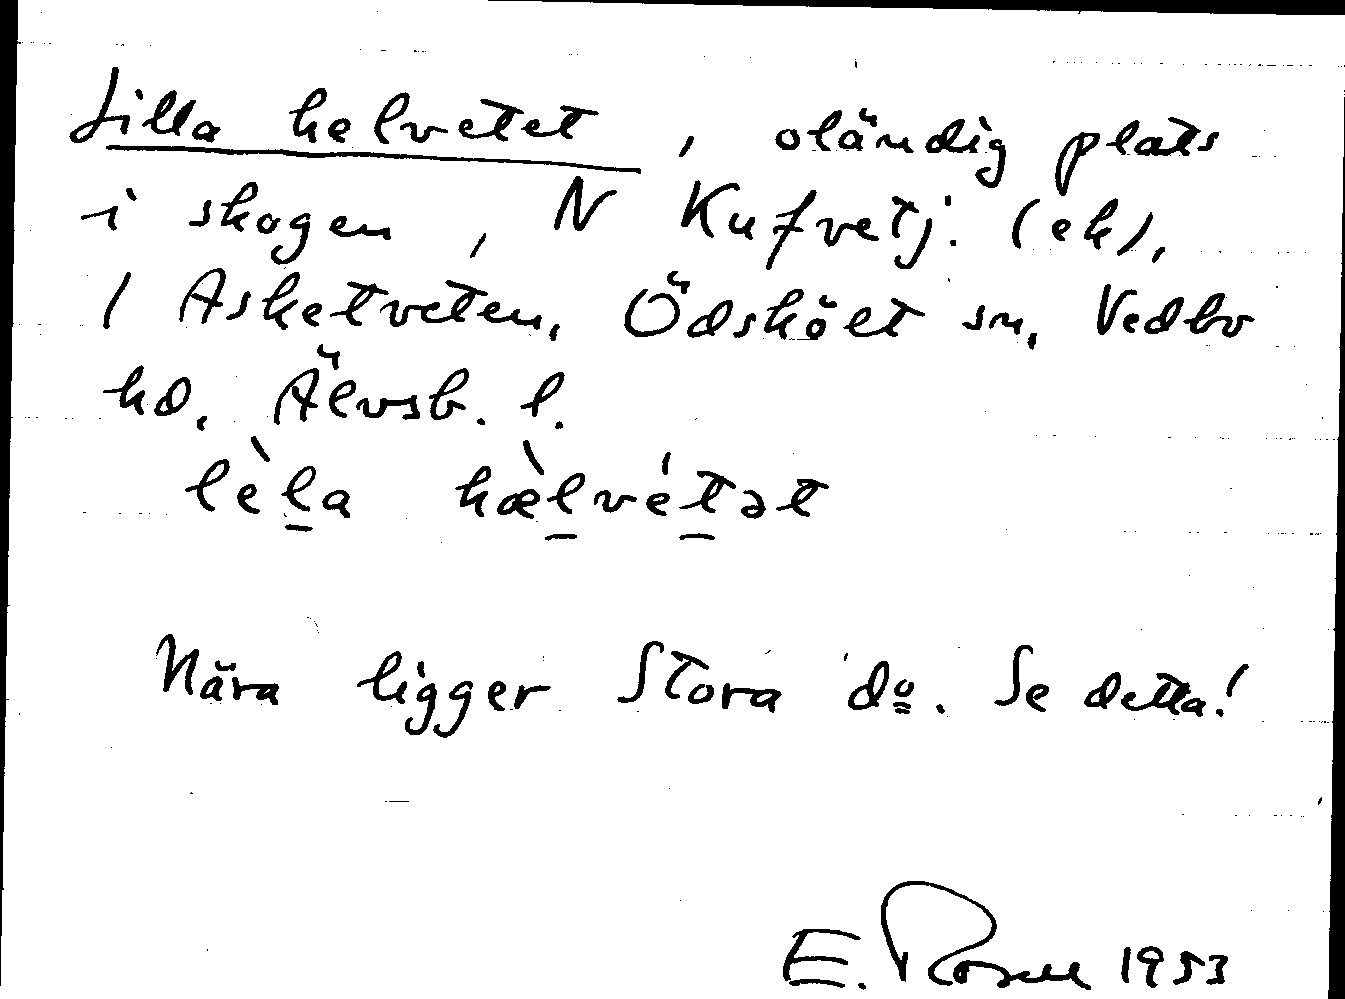 Lilla helvetet, oländig plats
i skogen, N Kufvetj. (ek),
1 Asketveten, Ödskölt sn, Vedbo
hd. Älvsb. l.
lèl̲a hæ̀l̲vét̲ət
Nära ligger Stora do. Se detta!
E. Rosell 1953